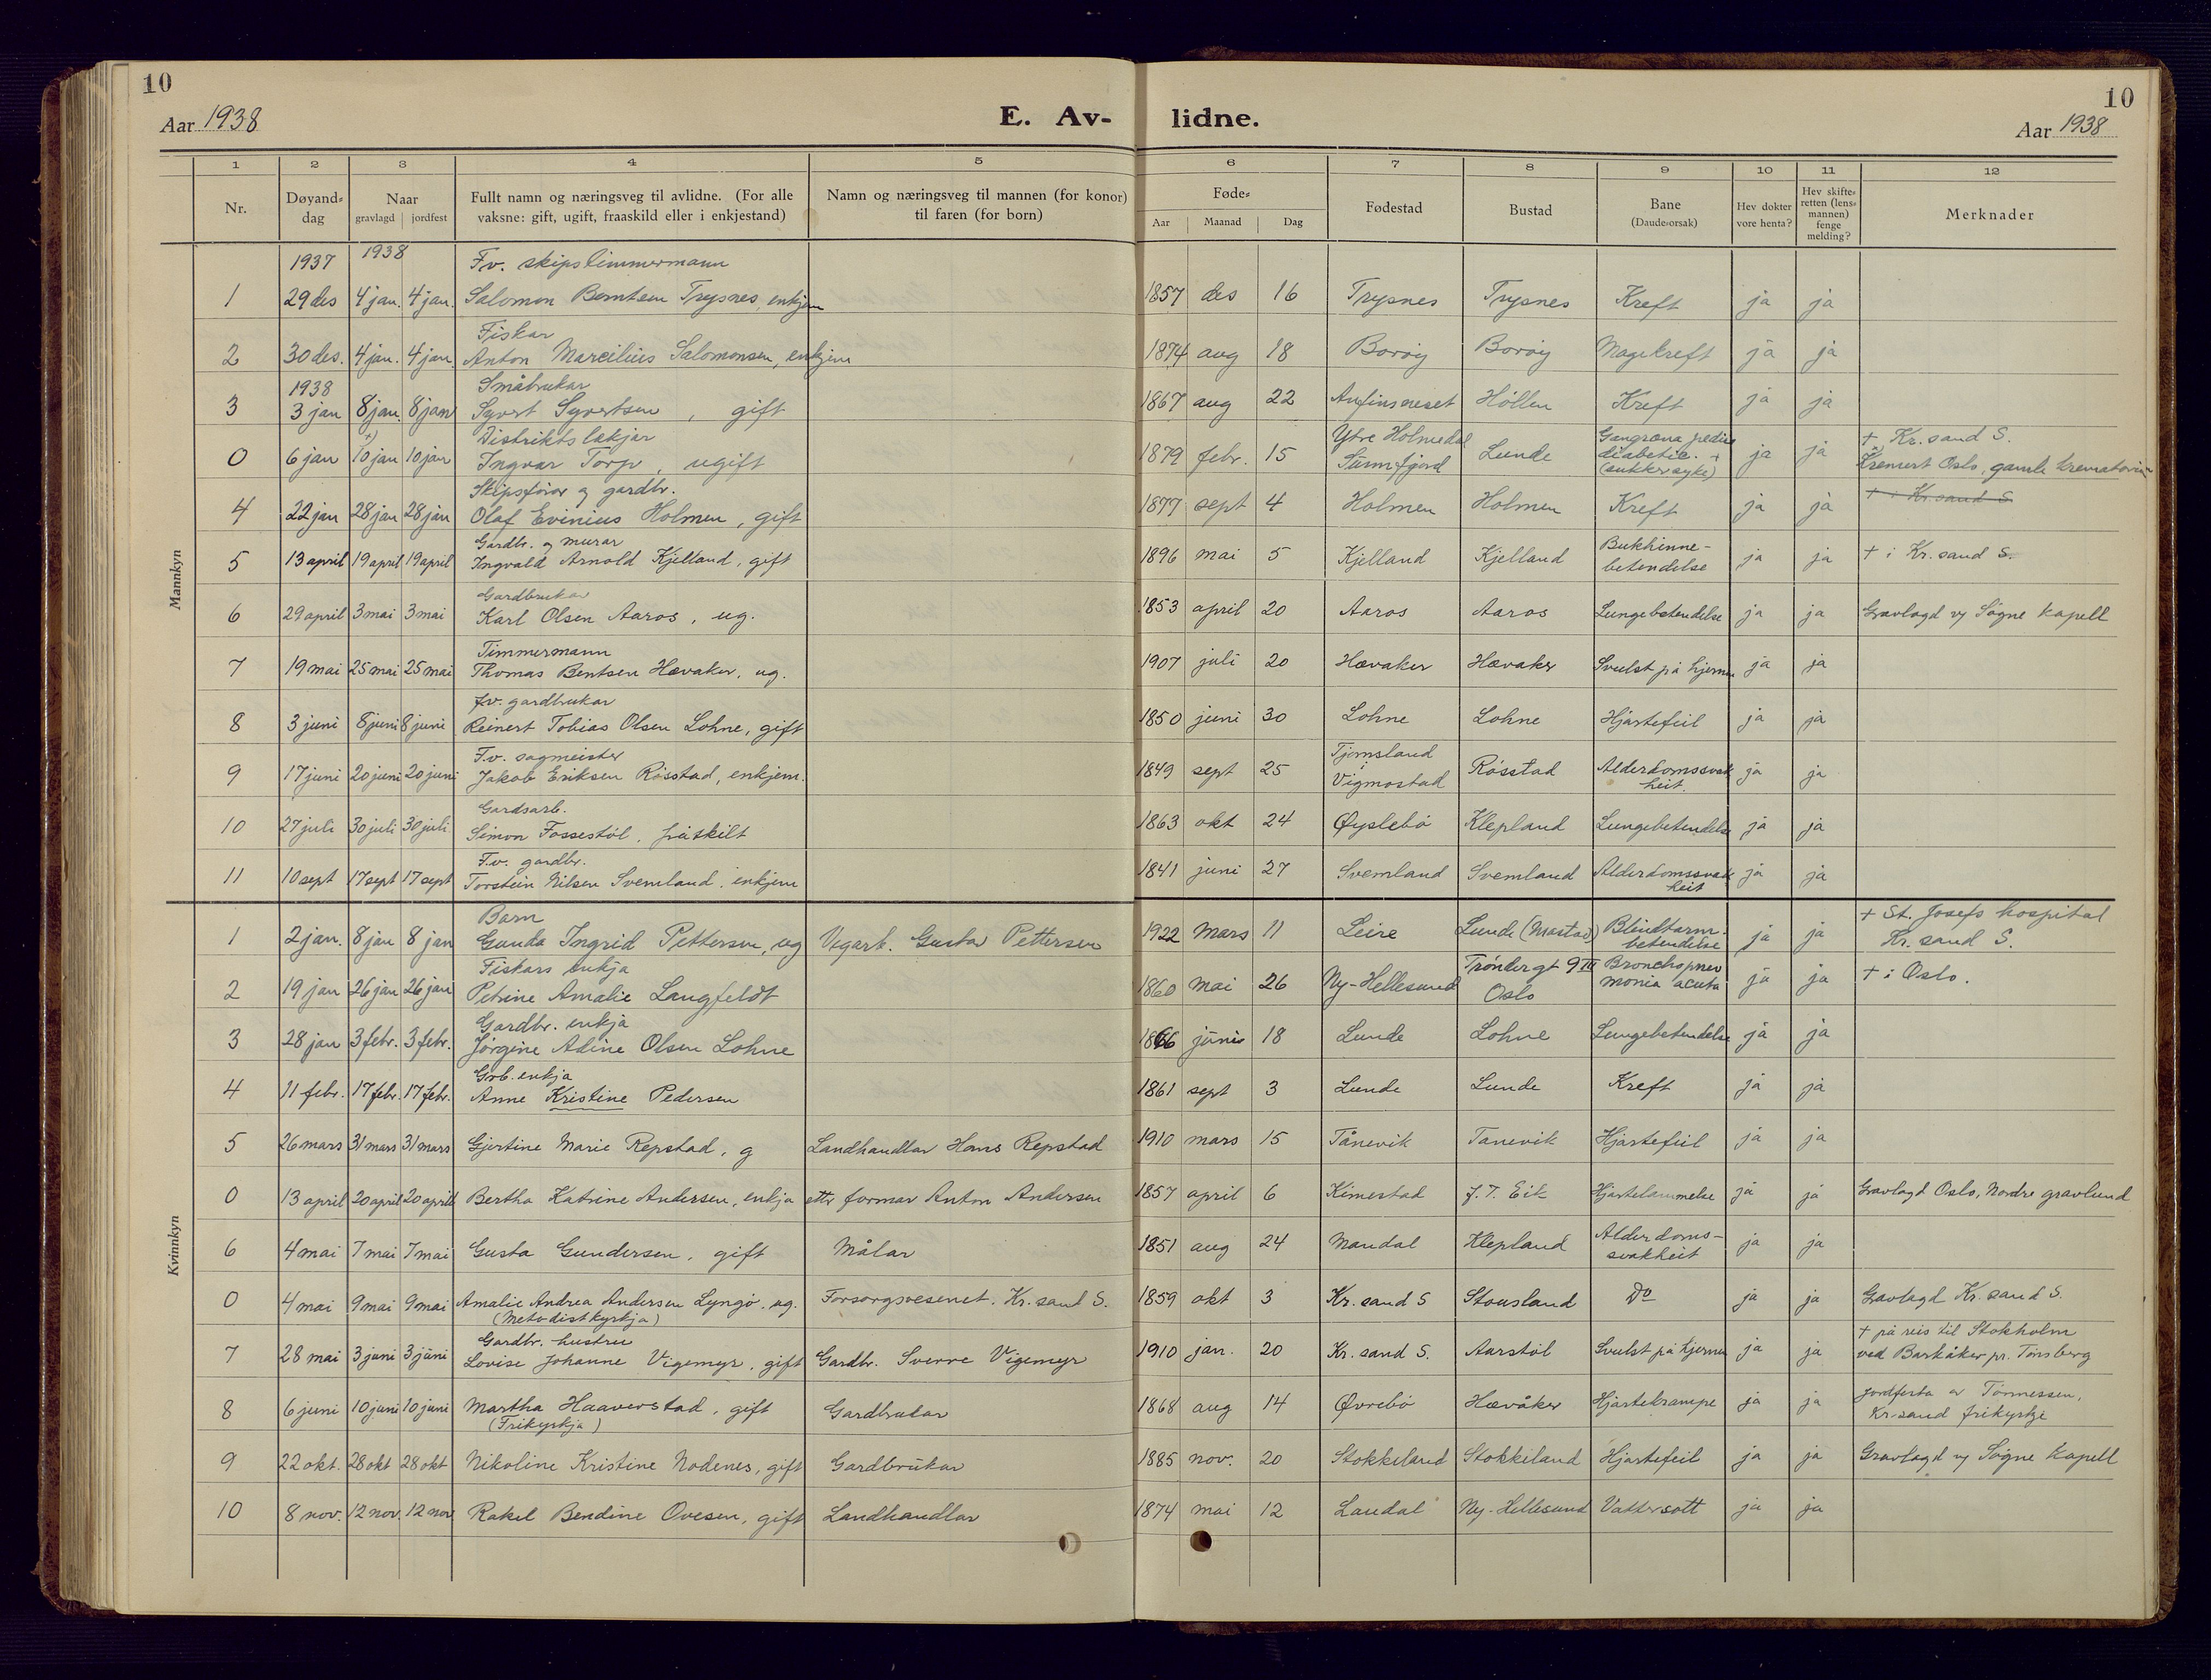 10
10
Aar 1938
E. Av- lidne.
Aar 1938
1 2 3 4 5 6 7 8 9 10 11 12
Nr.
Døyand-dag
Naar
gravlagd jordfest
Fullt namn og næringsveg til avlidne. (For alle
vaksne: gift, ugift, fraaskild eller i enkjestand)
Namn og næringsveg til mannen (for konor)
til faren (for born)
Føde-
Aar Maanad Dag
Fødestad
Bustad
Bane
(Daude-orsak)
Hev dokter
vore henta?
Hev skifte-
retten (lens-
mannen)
fenge
melding?
Merknader
Mannkyn
1937 1938 Fv. skipstimmermann
1 29 des 4 jan. 4 jan. Salomon Berntsen Trysnes, enkjem 1857 des 16 Trysnes Trysnes Kreft ja ja
Fiskar
2 30 des. 4 jan. 4 jan. Anton Marcilius Salomonsen, enkjem 1874 aug 18 Borøy Borøy Magekreft ja ja
1938 Småbrukar
3 3 jan 8 jan. 8 jan Syvert Syvertsen, gift 1867 aug 22 Anfinsneset Höllen Kreft ja ja
Distriktslækjar Ytre Holmedal Gangræna pedis + Kr.sand S.
0 6 jan +) 10 jan 10 jan Ingvar Torp, ugift 1879 febr. 15 Sunnfjord Lunde diabetic. + (sukkersyke) ja ja Kremert Oslo, gamle krematorium
Skipsförar og gardbr.
4 22 jan 28 jan 28 jan Olaf Evinius Holmen, gift 1877 sept 4 Holmen Holmen Kreft ja ja + i Kr.sand S
Gardbr. og murar Bukhinne-
5 13 april 19 april 19 april Ingvald Arnold Kjelland, gift 1896 mai 5 Kjelland Kjelland betendelse ja ja + i Kr.sand S.
Gardbrukar
6 29 april 3 mai 3 mai Karl Olsen Aaros, ug. 1853 april 20 Aaros Aaros Lungebetendelse ja ja Gravlagd v/ Sögne kapell
Timmermann
7 19 mai 25 mai 25 mai Thomas Bentsen Hævaker, ug. 1907 juli 20 Hævaker Hævaker Svulst på hjernen ja ja
fv. gardbrukar
8 3 juni 8 juni 8 juni Reinert Tobias Olsen Lohne, gift 1850 juni 30 Lohne Lohne Hjartefeil ja ja
F.v. sagmeister Tjomsland i
9 17 juni 20 juni 20 juni Jakob Eriksen Rösstad, enkjem. 1849 sept 25 Vigmostad Rösstad Alderdomssvakheit. ja ja
Gardsarb.
10 27 juli 30 juli 30 juli Simon Fossestöl, fråskilt 1863 okt 24 Øyslebö Klepland Lungebetendelse ja ja
F.v. gardbr.
11 10 sept 17 sept 17 sept Torstein Nilsen Svemland, enkjem 1841 juni 27 Svemland Svemland Alderdomssvakheit ja ja
Kvinnkyn
Barn + St. Josefs hospital
1 2 jan. 8 jan 8 jan Gunda Ingrid Pettersen, ug Vegarb. Gustav Pettersen 1922 Mars 11 Leire Lunde (Mastad) Blindtarm-betendelse ja ja Kr.sand S.
Fiskars enkja Tröndergt 9 III Bronchopneu
2 19 jan 26 jan 26 jan Petrine Amalie Langfeldt 1860 mai 26 Ny-Hellesund Oslo monia acuta ja ja + i Oslo.
Gardbr. enkja
3 28 jan 3 febr. 3 febr. Jörgine Adine Olsen Lohne 1866 juni 18 Lunde Lohne Lungebetendelse ja ja
Grb. enkja
4 11 febr. 17 febr. 17 febr. Anne Kristine Pedersen 1861 sept 3 Lunde Lunde Kreft ja ja
5 26 mars 31 mars 31 mars Gjertine Marie Repstad, g Landhandlar Hans Repstad 1910 mars 15 Tånevik Tanevik Hjartefeil ja ja
0 13 april 20 april 20 april Bertha Katrine Andersen, enkja ettr formar Anton Andersen 1857 april 6 Kimestad f. T. Eik Hjartelammelse ja ja Gravlagd Oslo, Nordre gravlund
6 4 mai 7 mai 7 mai Gusta Gundersen, gift Målar 1851 aug 24 Mandal Klepland Alderdoms-svakheit ja ja
0 4 mai 9 mai 9 mai Amalie Andrea Andersen Lyngö, ug. Forsorgsvesenet. Kr.sand S. 1859 okt 3 Kr.sand S Stousland Do ja ja Gravlagd Kr.sand S.
(Metodistkyrkja)
Gardbr. hustru + på reis til Stokholm
7 28 mai 3 juni 3 juni Lovise Johanne Vigemyr, gift Gardbr. Sverre Vigemyr 1910 jan. 20 Kr.sand S. Aarstöl Svulst på hjernen ja ja ved Barkåker pr. Tönsberg
8 6 juni 10 juni 10 juni Martha Haaverstad, gift Gardbrukar 1868 aug 14 Øvrebö Hævåker Hjartekrampe ja ja Jordfesta av Tönnessen,
(Frikyrkja) Kr.sand frikyrkje
9 22 okt. 28 okt 28 okt Nikoline Kristine Nodenes, gift Gardbrukar 1885 nov. 20 Stokkeland Stokkeland Hjartefeil ja ja Gravlagd v/ Sögne kapell
10 8 nov. 12 nov. 12 nov Rakel Bendine Ovesen, gift Landhandlar 1874 mai 12 Laudal Ny-Hellesund Vattersott ja ja